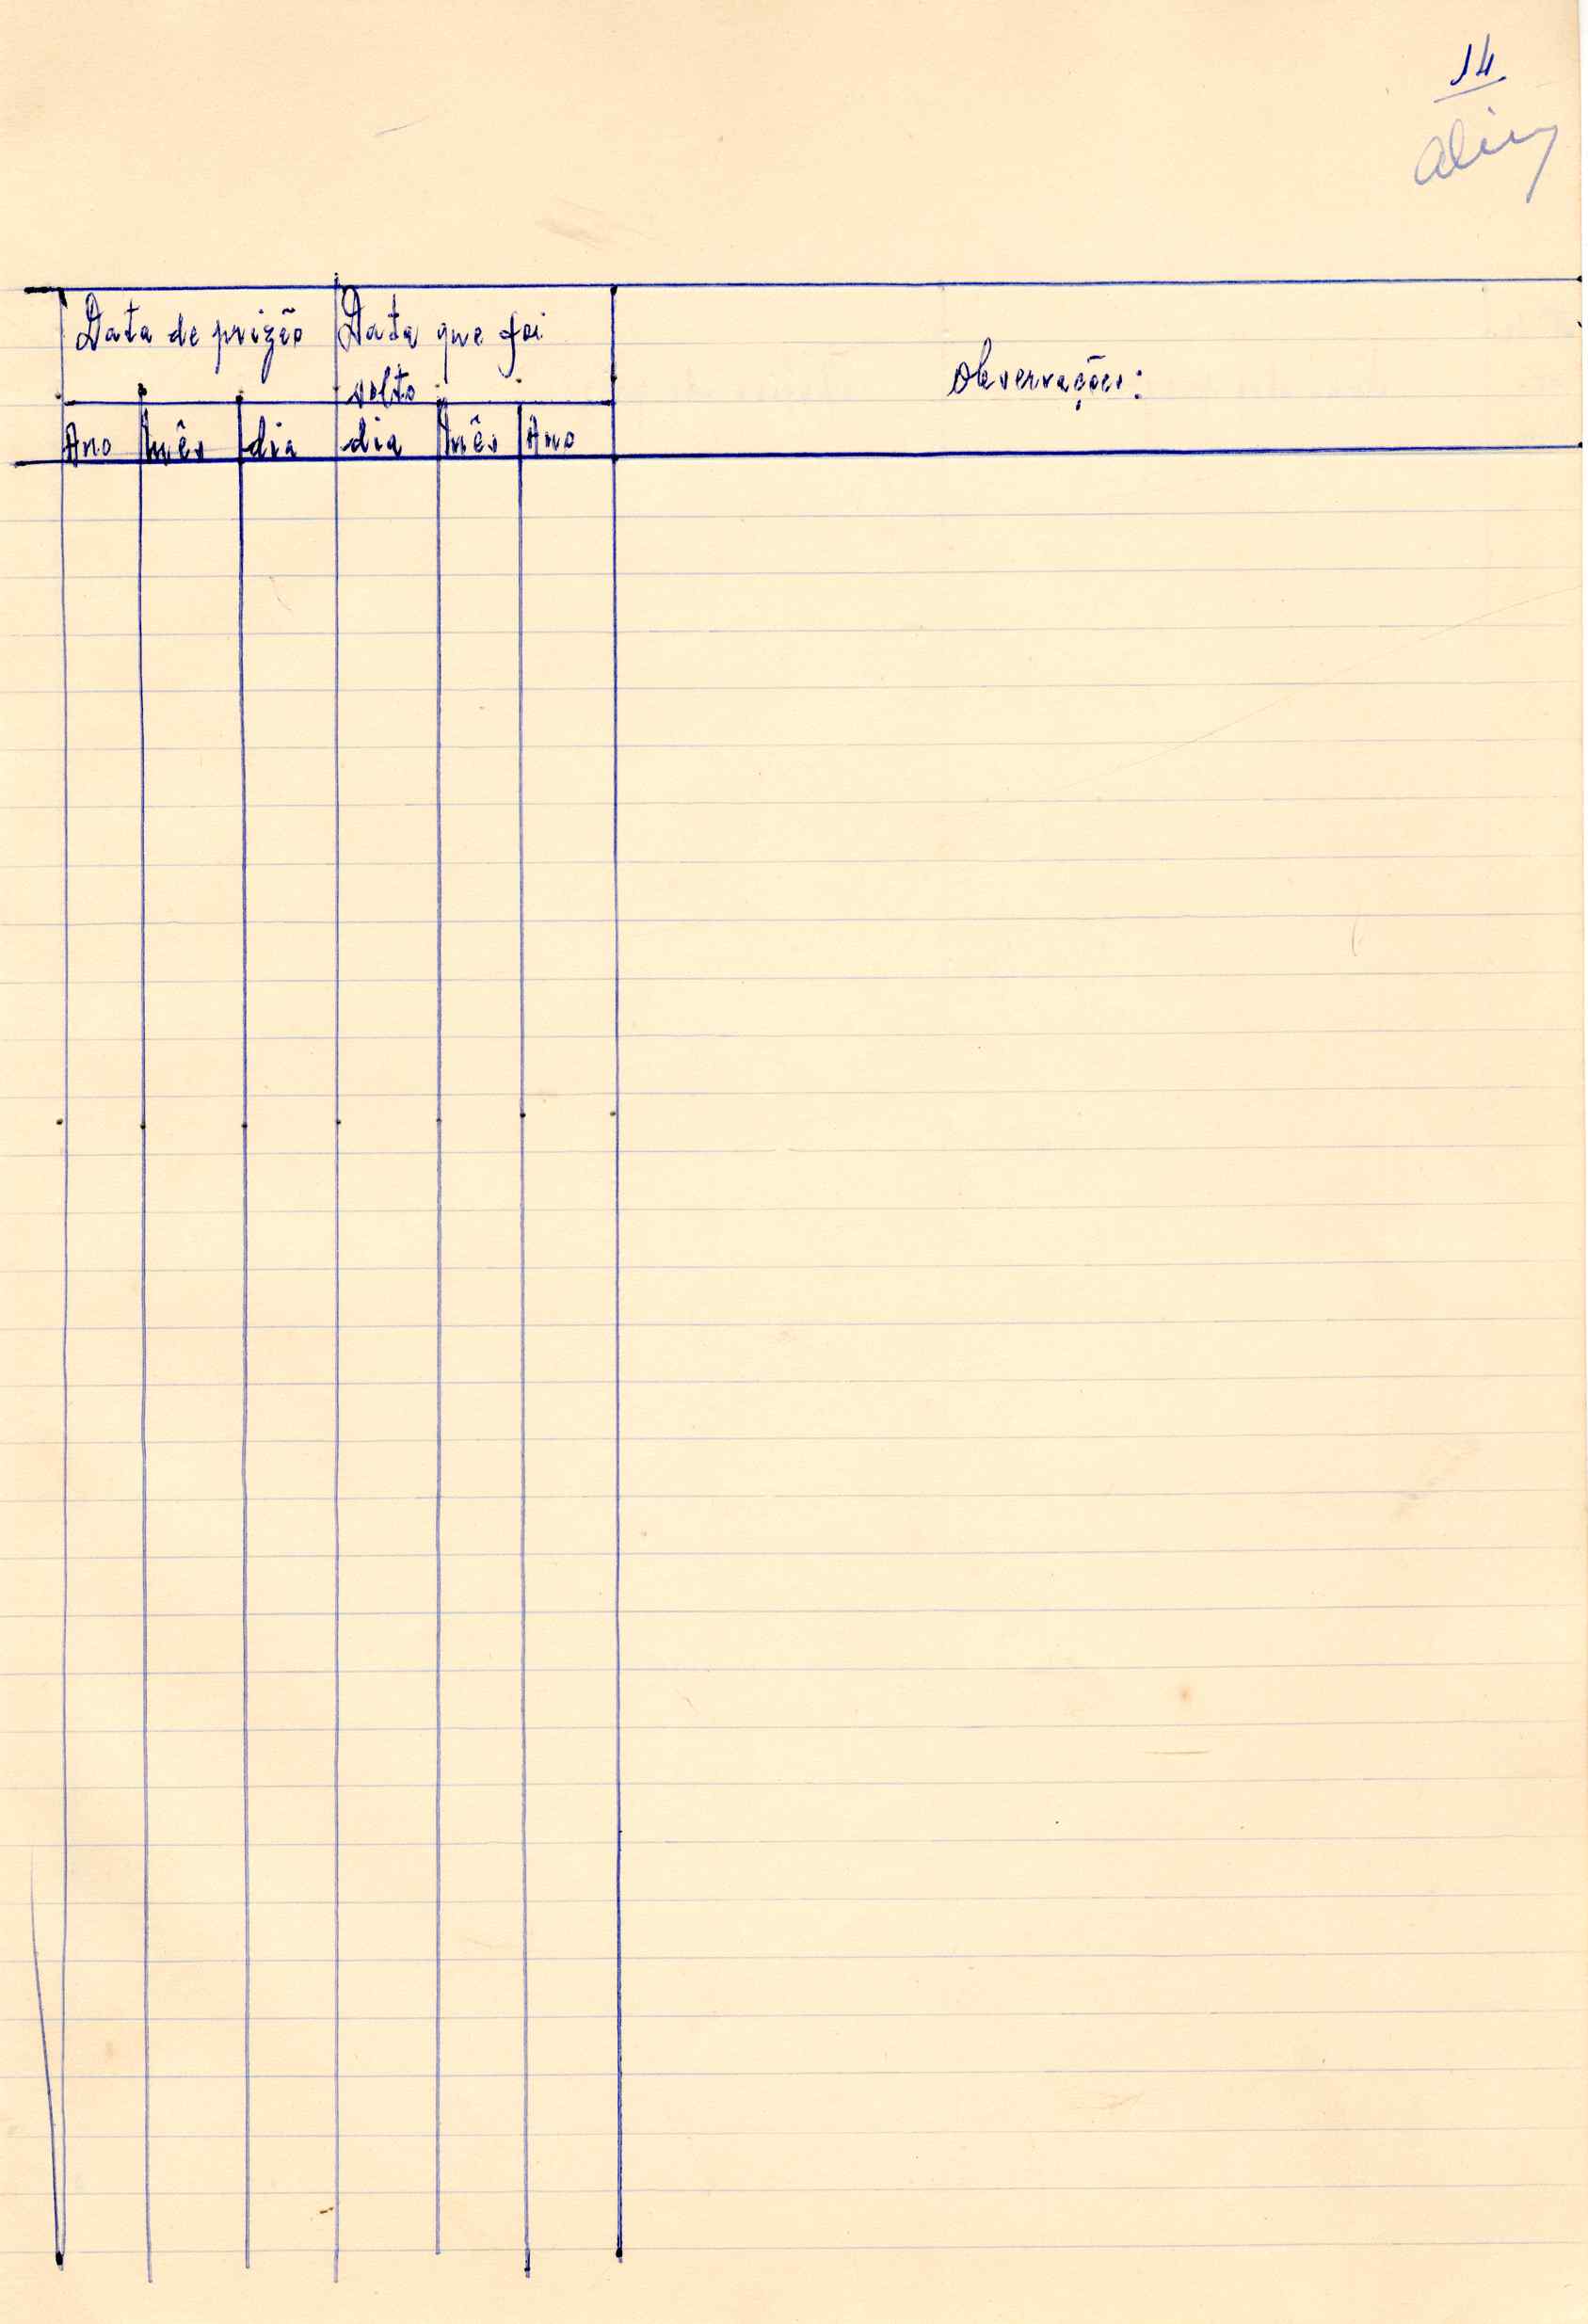 14
Data de prizão Data que foi
solto
Observações:
Ano Mês dia dia Mês Ano